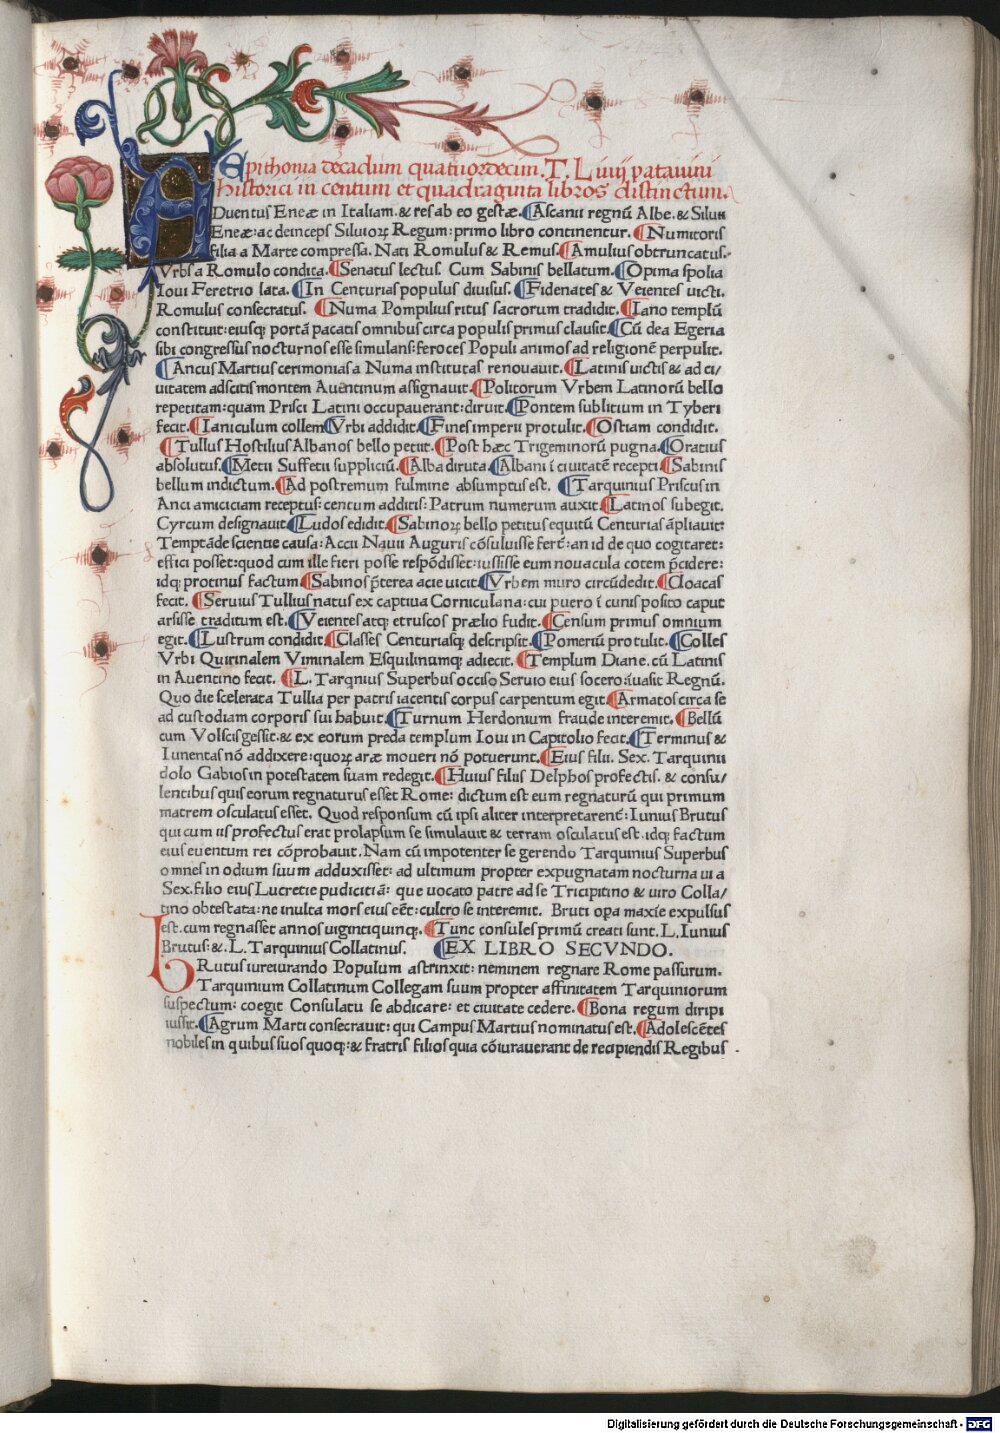 Epithoma decadum quatuordecim. T. Liuij patauini
historici in centum et quadraginta libros distinctum.
ADuentus Eneæ in Italiam. & res ab eo gestæ. Ascanii regnū Albe. & Siluii
Eneæ: ac deinceps Siluioꝝ Regum: primo libro continentur. Numitoris
filia a Marte compressa. Nati Romulus & Remus. Amulius obtruncatus.
Vrbs a Romulo condita. Senatus lectus. Cum Sabinis bellatum. Opima spolia
Ioui Feretrio lata. In Centurias populus diuisus. Fidenates & Veientes uicti.
Romulus consecratus. Numa Pompilius ritus sacrorum tradidit. Iano templū
constituit: eiusq; portā pacatis omnibus circa populis primus clausit. Cū dea Egeria
sibi congressus nocturnos esse simulans: feroces Populi animos ad religionē perpulit.
Ancus Martius cerimonias a Numa institutas renouauit. Latinis uictis & ad ci/
uitatem adscitis montem Auentinum assignauit. Politorum Vrbem Latinorū bello
repetitam: quam Prisci Latini occupauerant: diruit. Pontem sublitium in Tyberi
fecit. Ianiculum collem Vrbi addidit. Fines imperii protulit. Ostiam condidit.
Tullus Hostilius Albanos bello petiit. Post hæc Trigeminorū pugna. Oratius
absolutus. Metii Suffetii suppliciū. Alba diruta. Albani ī ciuitatē recepti. Sabinis
bellum indictum. Ad postremum fulmine absumptus est. Tarquinius Priscus in
Anci amiciciam receptus: centum additis: Patrum numerum auxit. Latinos subegit.
Cyrcum designauit. Ludos edidit. Sabinoꝝ bello petitus equitū Centurias āpliauit:
Temptāde scientie causa: Accii Nauii Auguris cōsuluisse fert̄: an id de quo cogitaret:
effici posset: quod cum ille fieri posse respōdisset: iussisse eum nouacula cotem p̄cidere:
idq; protinus factum. Sabinos p̄terea acie uicit. Vrbem muro circūdedit. Cloacas
fecit. Seruius Tullius natus ex captiua Corniculana: cui puero ī cunis posito caput
arsisse traditum est. Veientes atq; etruscos prælio fudit. Censum primus omnium
egit. Lustrum condidit. Classes Centuriasq; descripsit. Pomeriū protulit. Colles
Vrbi Quirinalem Viminalem Esquilinumq; adiecit. Templum Diane. cū Latinis
in Auentino fecit. L. Tarqnius Superbus occiso Seruio eius socero īuasit Regnū.
Quo die scelerata Tullia per patris iacentis corpus carpentum egit. Armatos circa se
ad custodiam corporis sui habuit. Turnum Herdonium fraude interemit. Bellū
cum Volscis gessit. & ex eorum preda templum Ioui in Capitolio fecit. Terminus &
Iuuentas nō addixere: quoꝝ aræ moueri nō potuerunt. Eius filii. Sex. Tarquinii
dolo Gabios in potestatem suam redegit. Huius filiis Delphos profectis. & consu/
lentibus quis eorum regnaturus esset Rome: dictum est eum regnaturū qui primum
matrem osculatus esset. Quod responsum cū ipsi aliter interpretarent̄: Iunius Brutus
qui cum iis profectus erat prolapsum se simulauit & terram osculatus est. idq; factum
eius euentum rei cōprobauit. Nam cū impotenter se gerendo Tarquinius Superbus
omnes in odium suum adduxisset: ad ultimum propter expugnatam nocturna ui a
Sex. filio eius Lucretie pudicitiā: que uocato patre ad se Tricipitino & uiro Colla/
tino obtestata: ne inulta mors eius eēt: cultro se interemit. Bruti opa maxie expulsus
est. cum regnasset annos uigintiquinq;. Tunc consules primū creati sunt. L. Iunius
Brutus: &. L. Tarquinius Collatinus. EX LIBRO SECVNDO.
BRutus iureiurando Populum astrinxit: neminem regnare Rome passurum.
Tarquinium Collatinum Collegam suum propter affinitatem Tarquiniorum
suspectum: coegit Consulatu se abdicare: et ciuitate cedere. Bona regum diripi
iussit. Agrum Marti consecrauit: qui Campus Martius nominatus est. Adolescētes
nobiles in quibus suos quoq;: & fratris filios quia cōiurauerant de recipiendis Regibus
Digitalisierung gefördert durch die Deutsche Forschungsgemeinschaft - DFG